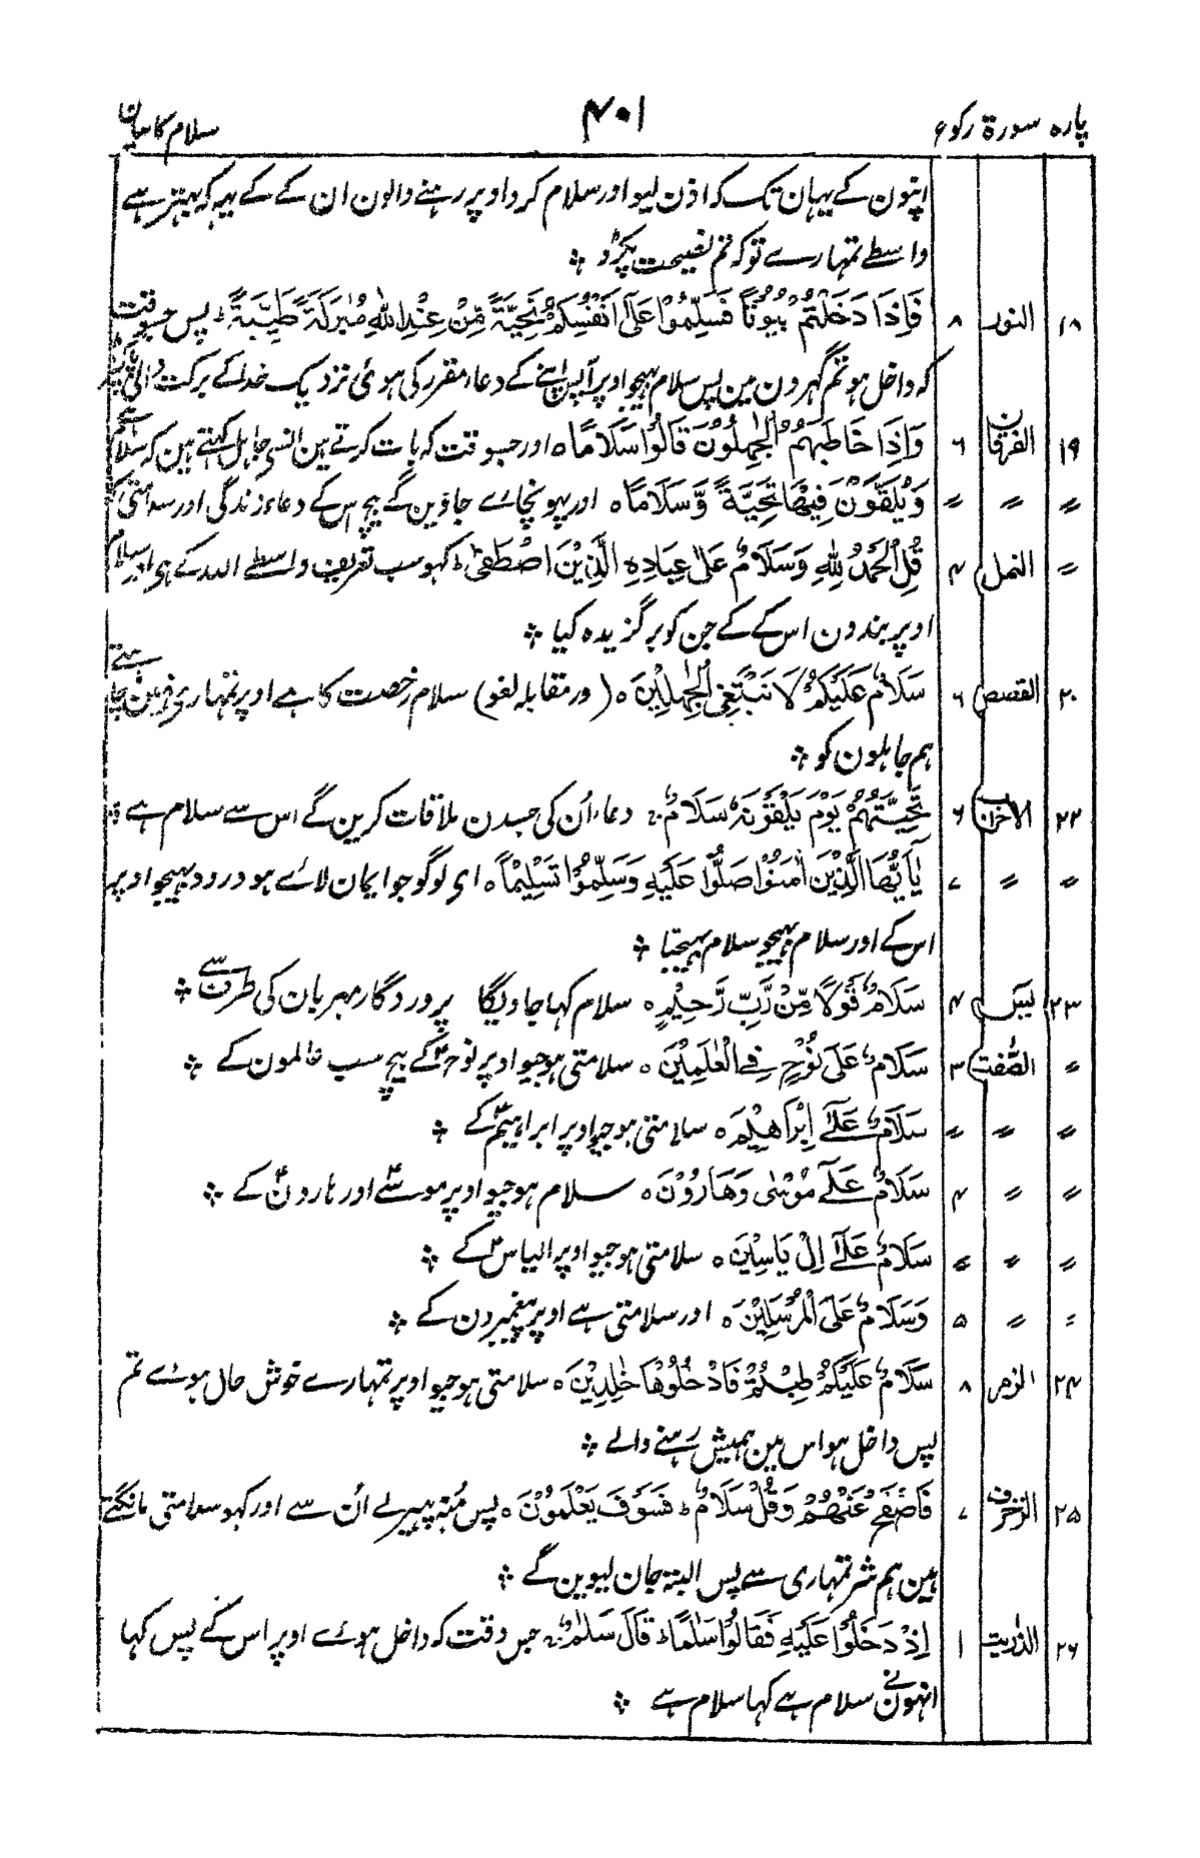 پارہ سورۃ رکوع ۴۰۱ سلام کا بیان
اپنون کے یہان تک کہ اذن لیو اور سلام کرو اوپر رہنے والون ان کے کے یہہ کہ بہتر ہے
واسطے تمہارے تو کہ تم نصیحت پکڑو
۱۸ النور ۸ فَاِذَا دَخَلْتُمْ بُيُوْتًا فَسَلِّمُوْا عَلٰٓى اَنْفُسِكُمْ تَحِيَّةً مِّنْ عِنْدِ اللّٰهِ مُبٰرَكَةً طَيِّبَةً ؕ پس جسوقت
کہ داخل ہو تم گہرون مین پس سلام بہیجو اوپر آپس اپنے کے دعاء مقرر کی ہوئی نزدیک خدا کے برکت والی
۱۹ الفرقان ۶ وَاِذَا خَاطَبَهُمُ الْجٰهِلُوْنَ قَالُوْا سَلَامًا ہ اور جسوقت کہ بات کرتے ہین انسے جاہل کہتے ہین کہ سلام ہے
〃 〃 〃 وَيُلَقَّوْنَ فِيْهَا تَحِيَّةً وَّسَلَامًا ہ اور پہونچاے جاوین گے بیچ اس کے دعاء زندگی اور سلامتی کی
〃 النمل ۴ قُلِ الْحَمْدُ لِلّٰهِ وَسَلَامٌ عَلٰى عِبَادِهِ الَّذِيْنَ اصْطَفٰى ؕ کہو سب تعریف واسطے اللہ کے ہی اور سلام
اوپر بندون اس کے کے جن کو برگزیدہ کیا
۲۰ القصص ۶ سَلَامٌ عَلَيْكُمْ لَا نَبْتَغِى الْجٰهِلِيْنَ ہ (در مقابلہ لغو) سلام رخصت کا ہے اوپر تمہاری نہین چاہتے
ہم جاہلون کو
۲۲ الاحزاب ۶ تَحِيَّتُهُمْ يَوْمَ يَلْقَوْنَهٗ سَلَامٌ دعاء اُن کی جسدن ملاقات کرین گے اس سے سلام ہے
〃 〃 ۷ يٰٓاَيُّهَا الَّذِيْنَ اٰمَنُوْا صَلُّوْا عَلَيْهِ وَسَلِّمُوْا تَسْلِيْمًا ہ ای لوگو جو ایمان لائے ہو درود بہیجو اوپر
اس کے اور سلام بہیجو سلام بہیجنا
۲۳ یٰسٓ ۴ سَلَامٌ قَوْلًا مِّنْ رَّبٍّ رَّحِيْمٍ ہ سلام کہا جاویگا پروردگار مہربان کی طرف سے
〃 الصّٰفٰت ۳ سَلَامٌ عَلٰى نُوْحٍ فِى الْعٰلَمِيْنَ ہ سلامتی ہو جیو اوپر نوحؑ کے بیچ سب عالمون کے
〃 〃 〃 سَلَامٌ عَلٰٓى اِبْرَاهِيْمَ ہ سلامتی ہو جیو اوپر ابراہیمؑ کے
〃 〃 ۴ سَلَامٌ عَلٰى مُوْسٰى وَهَارُوْنَ ہ سلام ہو جیو اوپر موسےٰؑ اور ہارونؑ کے
〃 〃 〃 سَلَامٌ عَلٰٓى اِلْ يَاسِيْنَ ہ سلامتی ہو جیو اوپر الیاسؑ کے
〃 〃 ۵ وَسَلَامٌ عَلَى الْمُرْسَلِيْنَ ہ اور سلامتی ہے اوپر پیغمبرون کے
۲۴ الزمر ۸ سَلَامٌ عَلَيْكُمْ طِبْتُمْ فَادْخُلُوْهَا خٰلِدِيْنَ ہ سلامتی ہو جیو اوپر تمہارے خوش حال ہوئے تم
پس داخل ہو اس مین ہمیش رہنے والے
۲۵ الزخرف ۷ فَاصْفَحْ عَنْهُمْ وَقُلْ سَلَامٌ ؕ فَسَوْفَ يَعْلَمُوْنَ ہ پس مُنہ پھیر لے اُن سے اور کہو سلامتی مانگتے
ہین ہم شر تمہاری سے پس البتہ جان لیوین گے
۲۶ الذّٰریٰت ۱ اِذْ دَخَلُوْا عَلَيْهِ فَقَالُوْا سَلٰمًا ؕ قَالَ سَلٰمٌ جس وقت کہ داخل ہوئے اوپر اس کے پس کہا
انہونے سلام ہے کہا سلام ہے